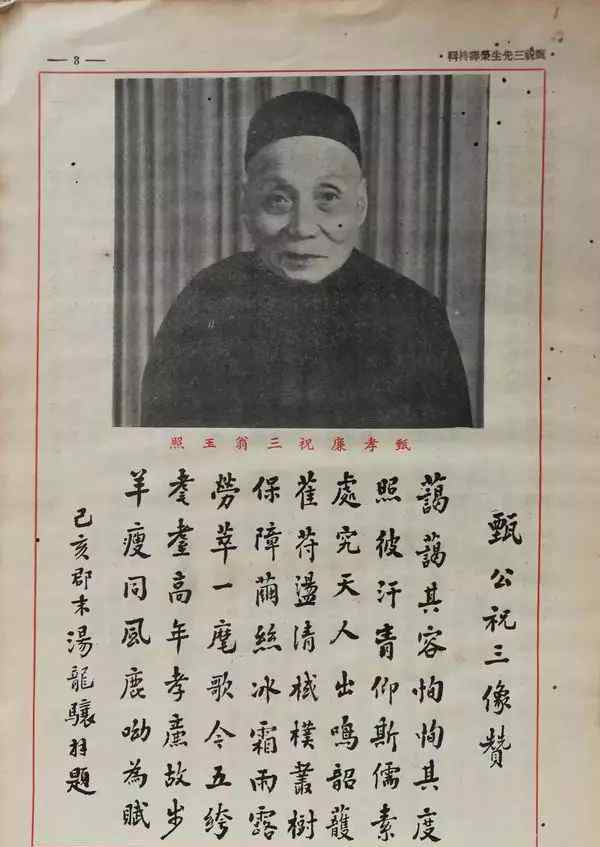 — 3 —
甄祝三先生榮壽特輯
甄孝廉祝三翁玉照
甄公祝三像贊
藹藹其容恂恂其度
照彼汗青仰斯儒素
處究天人出鳴韶頀
萑苻盪清棫樸叢樹
保障繭絲冰霜雨露
勞萃一麾歌令五絝
耄耋高年孝廉故步
羊瘦同風鹿呦為賦
己亥郡末湯龍驤拜題